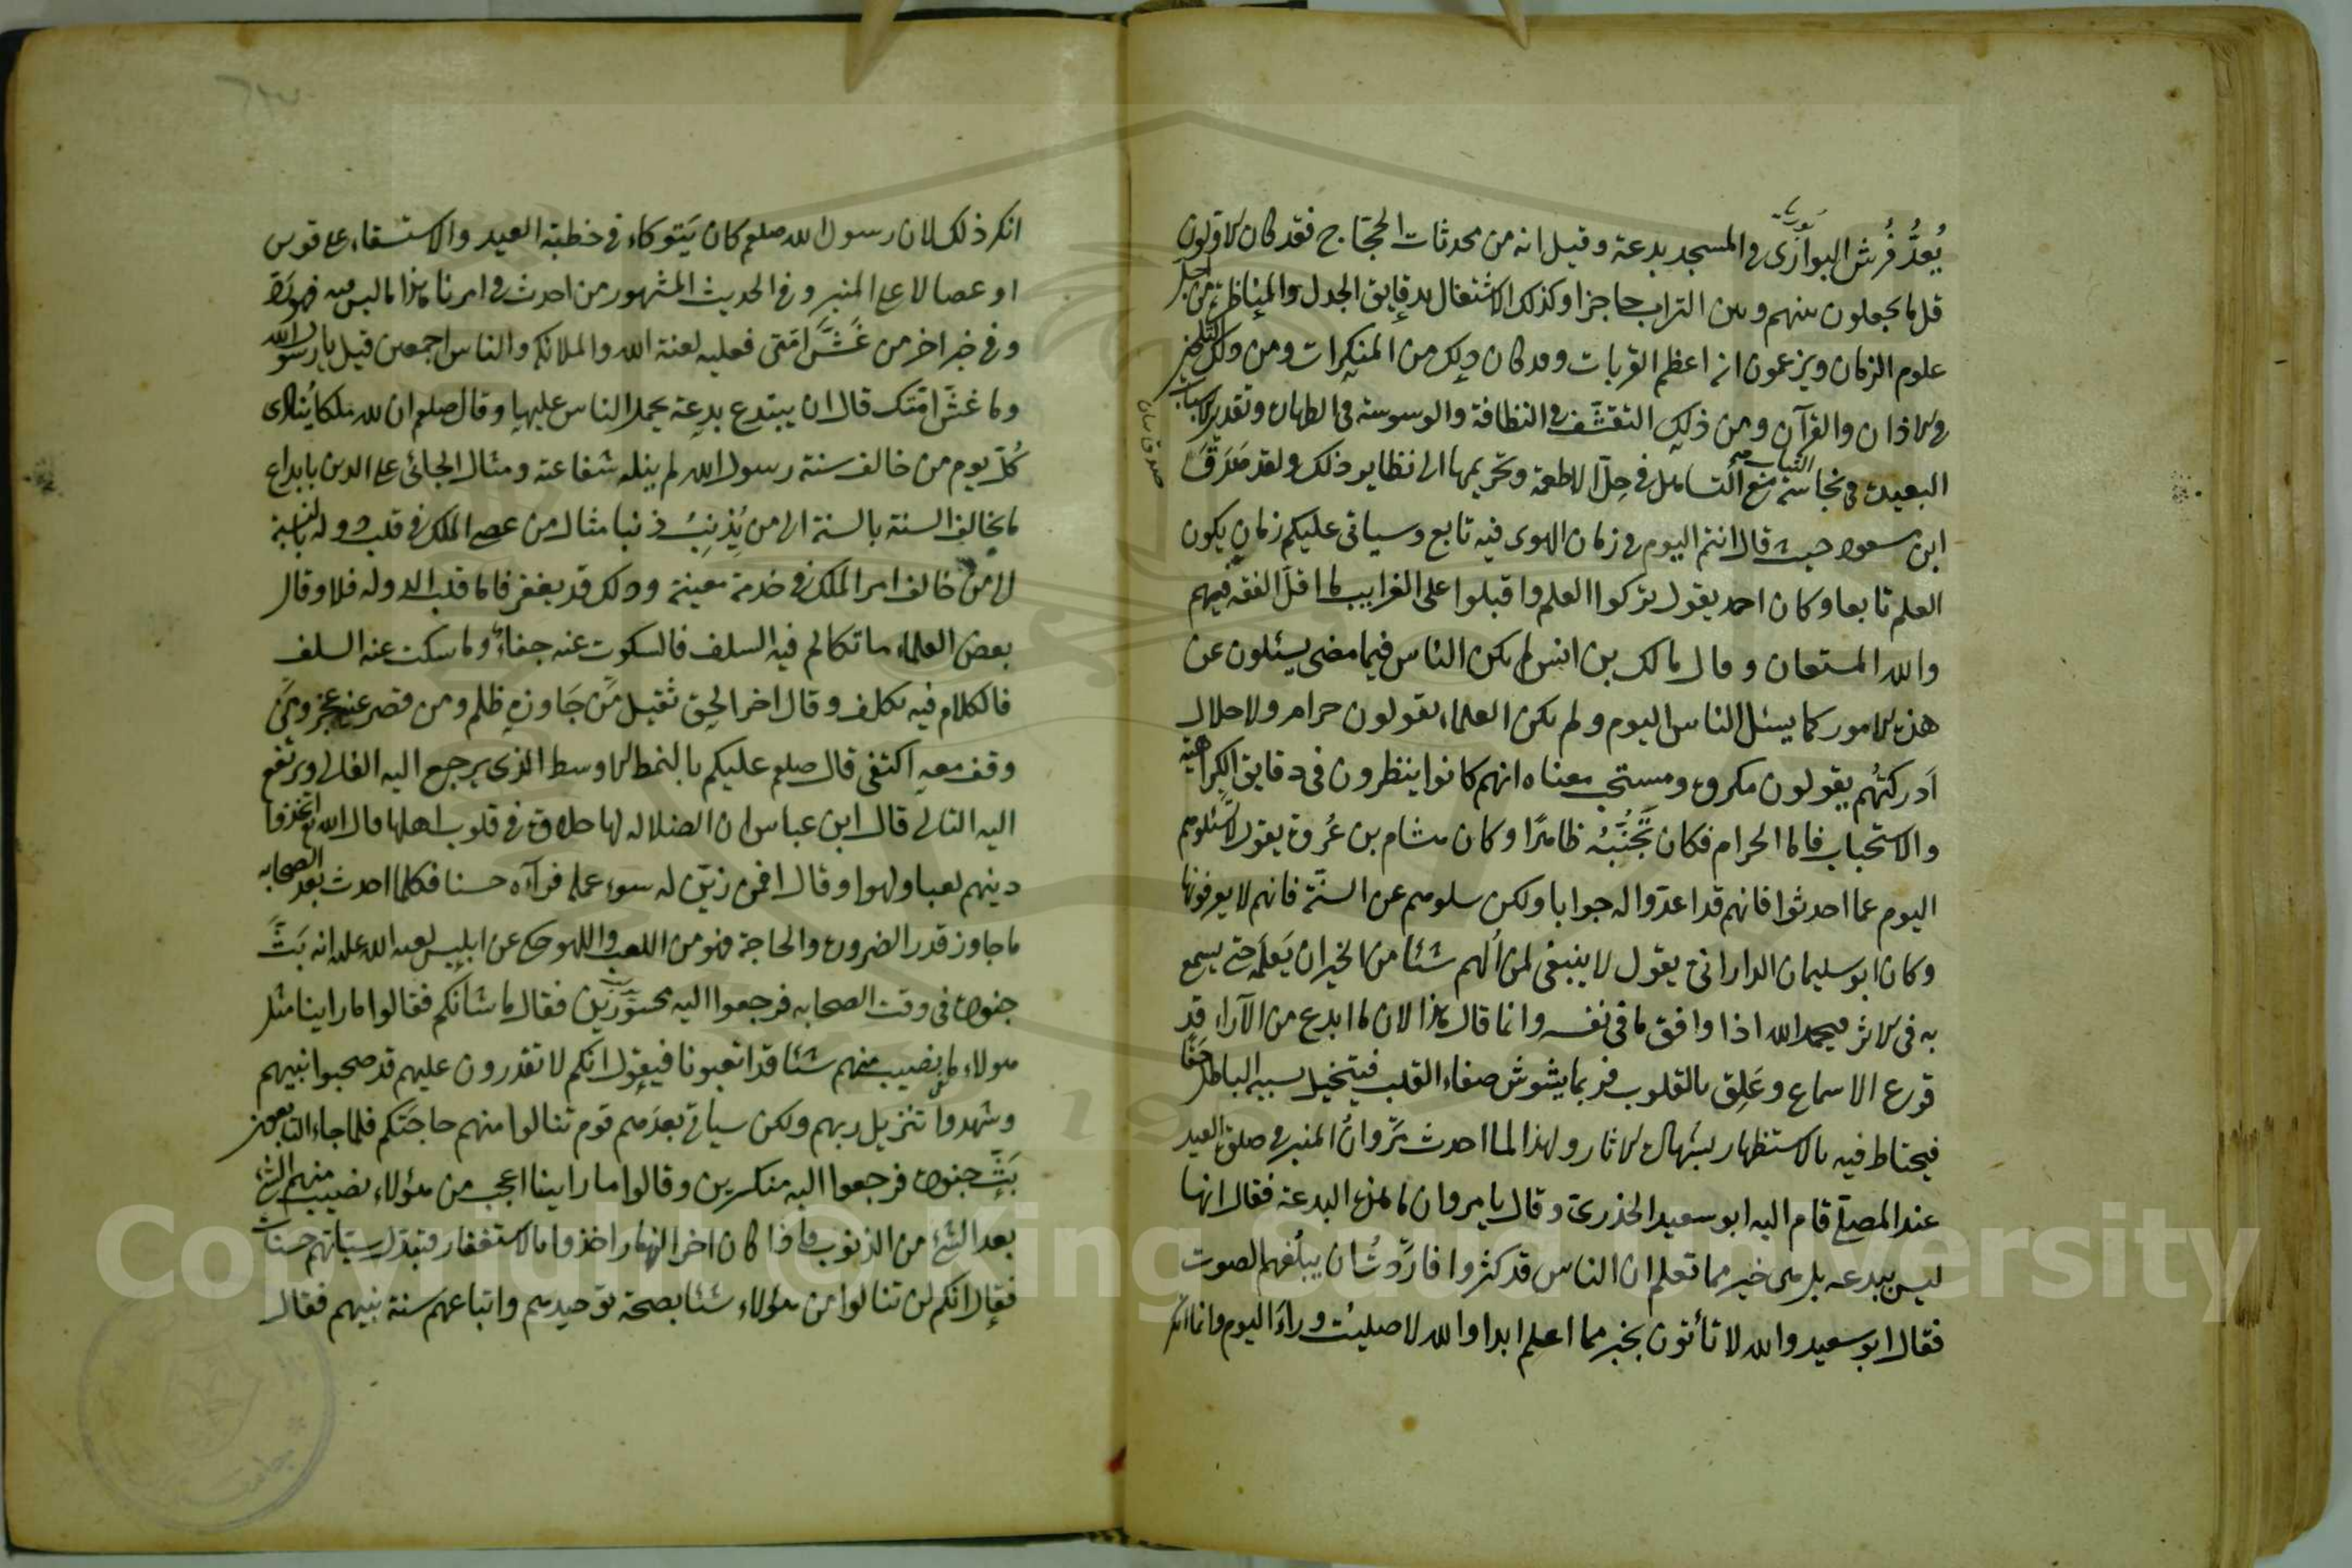 يُعدُّ فُرُش البوازى فى المسجد بدعة وقيل انه من محدثات الحجّاج فقد كان الاولون
قل ما يجعلون بينهم وبين التراب حاجزا وكذلك الاشتغال بدقايق الجدل والمناظرة من اجل
علوم الزمان ويزعمون انه اعظم القربات وقد كان ذلك من المنكرات ومن ذلك التلحين
فى الاذان والقرآن ومن ذلك التقشّف فى النظافة والوسوسة فى الطهارة وتقدير الاسباب
البعيدة فى نجاسة الثياب مع التساهل فى حلّ الاطعمة وتحريمها الى نظاير ذلك ولقد صدق
ابن مسعود حيث قال انتم اليوم فى زمان الهوى فيه تابع وسياتى عليكم زمان يكون
العلم تابعا وكان احمد يقول تركوا العلم واقبلوا على الغرايب ما اقلّ الفقه فيهم
والله المستعان وقال مالك بن انس لم يكن الناس فيما مضى يسئلون عن
هذه الامور كما يسئل الناس اليوم ولم يكن العلماء يقولون حرام ولا حلال
اَدركتُهُم يقولون مكروه ومستحب معناه انهم كانوا ينظرون فى دقايق الكراهية
والاستحباب فاما الحرام فكان تَجَنُّبُه ظاهرًا وكان هشام بن عُروة يقول لا تسئلوهم
اليوم عما احدثوا فانهم قد اعدّوا له جوابا ولكن سلوهم عن السنّة فانهم لا يعرفونها
وكان ابو سليمان الدارانى يقول لا ينبغى لمن اُلهم شئا من الخير ان يَعلَمَه حتى يسمع
به فى الاثر فيحمد الله اذا وافق ما فى نفسه وانما قال هذا لان ما ابدع من الآراء قد
قرع الاسماع وعَلِق بالقلوب فربما يشوش صفاء القلب فيتخيل بسببه الباطل حقا
فيحتاط فيه بالاستظهار بشهادة الاثار ولهذا لما احدث مَروانُ المنبر فى صلوة العيد
عند المصلى قام اليه ابو سعيد الخذرى وقال يا مروان ما هذه البدعة فقال انها
ليس ببدعه بل هى خير مما تعلم ان الناس قد كثروا فاردّتُ ان يبلُغهم الصوت
فقال ابو سعيد والله لا تأتون بخير مما اعلم ابدا والله لا صليت وراءَ اليوم وانما انكر
انكر ذلك لان رسول الله صلعم كان يَتوكاء فى خطبة العيد والاستسقاء على قوس
او عصا لا على المنبر وفى الحديث المشهور من احدث فى امرنا هذا ما ليس فيه فهو رَدّ
وفى خبر اخر من غَشَّ امّتى فعليه لعنة الله والملائكه والناس اجمعين قيل يا رسول الله
وما غشّ امّتك قال ان يبتدع بدعة يحمل الناس عليها وقال صلعم ان لله ملكا يُنادى
كُلّ يوم من خالف سنة رسول الله لم ينله شفاعته ومثال الجانى على الدين بابداع
ما يخالف السنة بالنسبة الى من يُذنِبُ ذنبا مثال من عصى الملك فى قلب دولته بالنسبة
الى من خالف امر الملك فى خدمة معينة وذلك قد يغفر فاما قلب الدوله فلا وقال
بعض العلماء ما تكالم فيه السلف فالسكوت عنه جفاء وما سكت عنه السلف
فالكلام فيه تكلف وقال اخر الحق ثقيل مَن جَاوزه ظلم ومن قصر عنه عجز ومَن
وقف معه اكتفى قال صلعم عليكم بالنمط الاوسط الذى يرجع اليه الغالى ويرتفع
اليه التالى قال ابن عباس ان الضلاله لها حلاوة فى قلوب اهلها قال الله تع اتخذوا
دينهم لعبا ولهوا وقال افمن زيّن له سوء عمله فرآه حسنا فكلما احدث بعد الصحابه
ما جاوز قدر الضرورة والحاجة فهو من اللعب واللهو حكى عن ابليس لعنه الله عليه انه بَثَّ
جنوده فى وقت الصحابه فرجعوا اليه محسورين فقال ما شأنكم فقالوا ما راينا مثل
هولاء ما نصيب منهم شئا قد اتعبونا فيقول انكم لا تقدرون عليهم قد صحبوا نبيهم
وشهدوا تنزيل ربهم ولكن سياتى بعدَهم قوم تنالوا منهم حاجتكم فلما جاء التابعون
بَثّ جنوده فرجعوا اليه منكسرين وقالوا ما راينا اعجب من هؤلاء نصيب منهم الشئ
بعد الشئ من الذنوب فاذا كان اخر النهار اخذوا بالاستغفار فتبدّل سيّاتهم حسنات
فقال انكم لن تنالوا من هؤلاء شئا بصحة توحيدهم واتباعهم سنة نبيهم فقال
Copyright © King Saud University